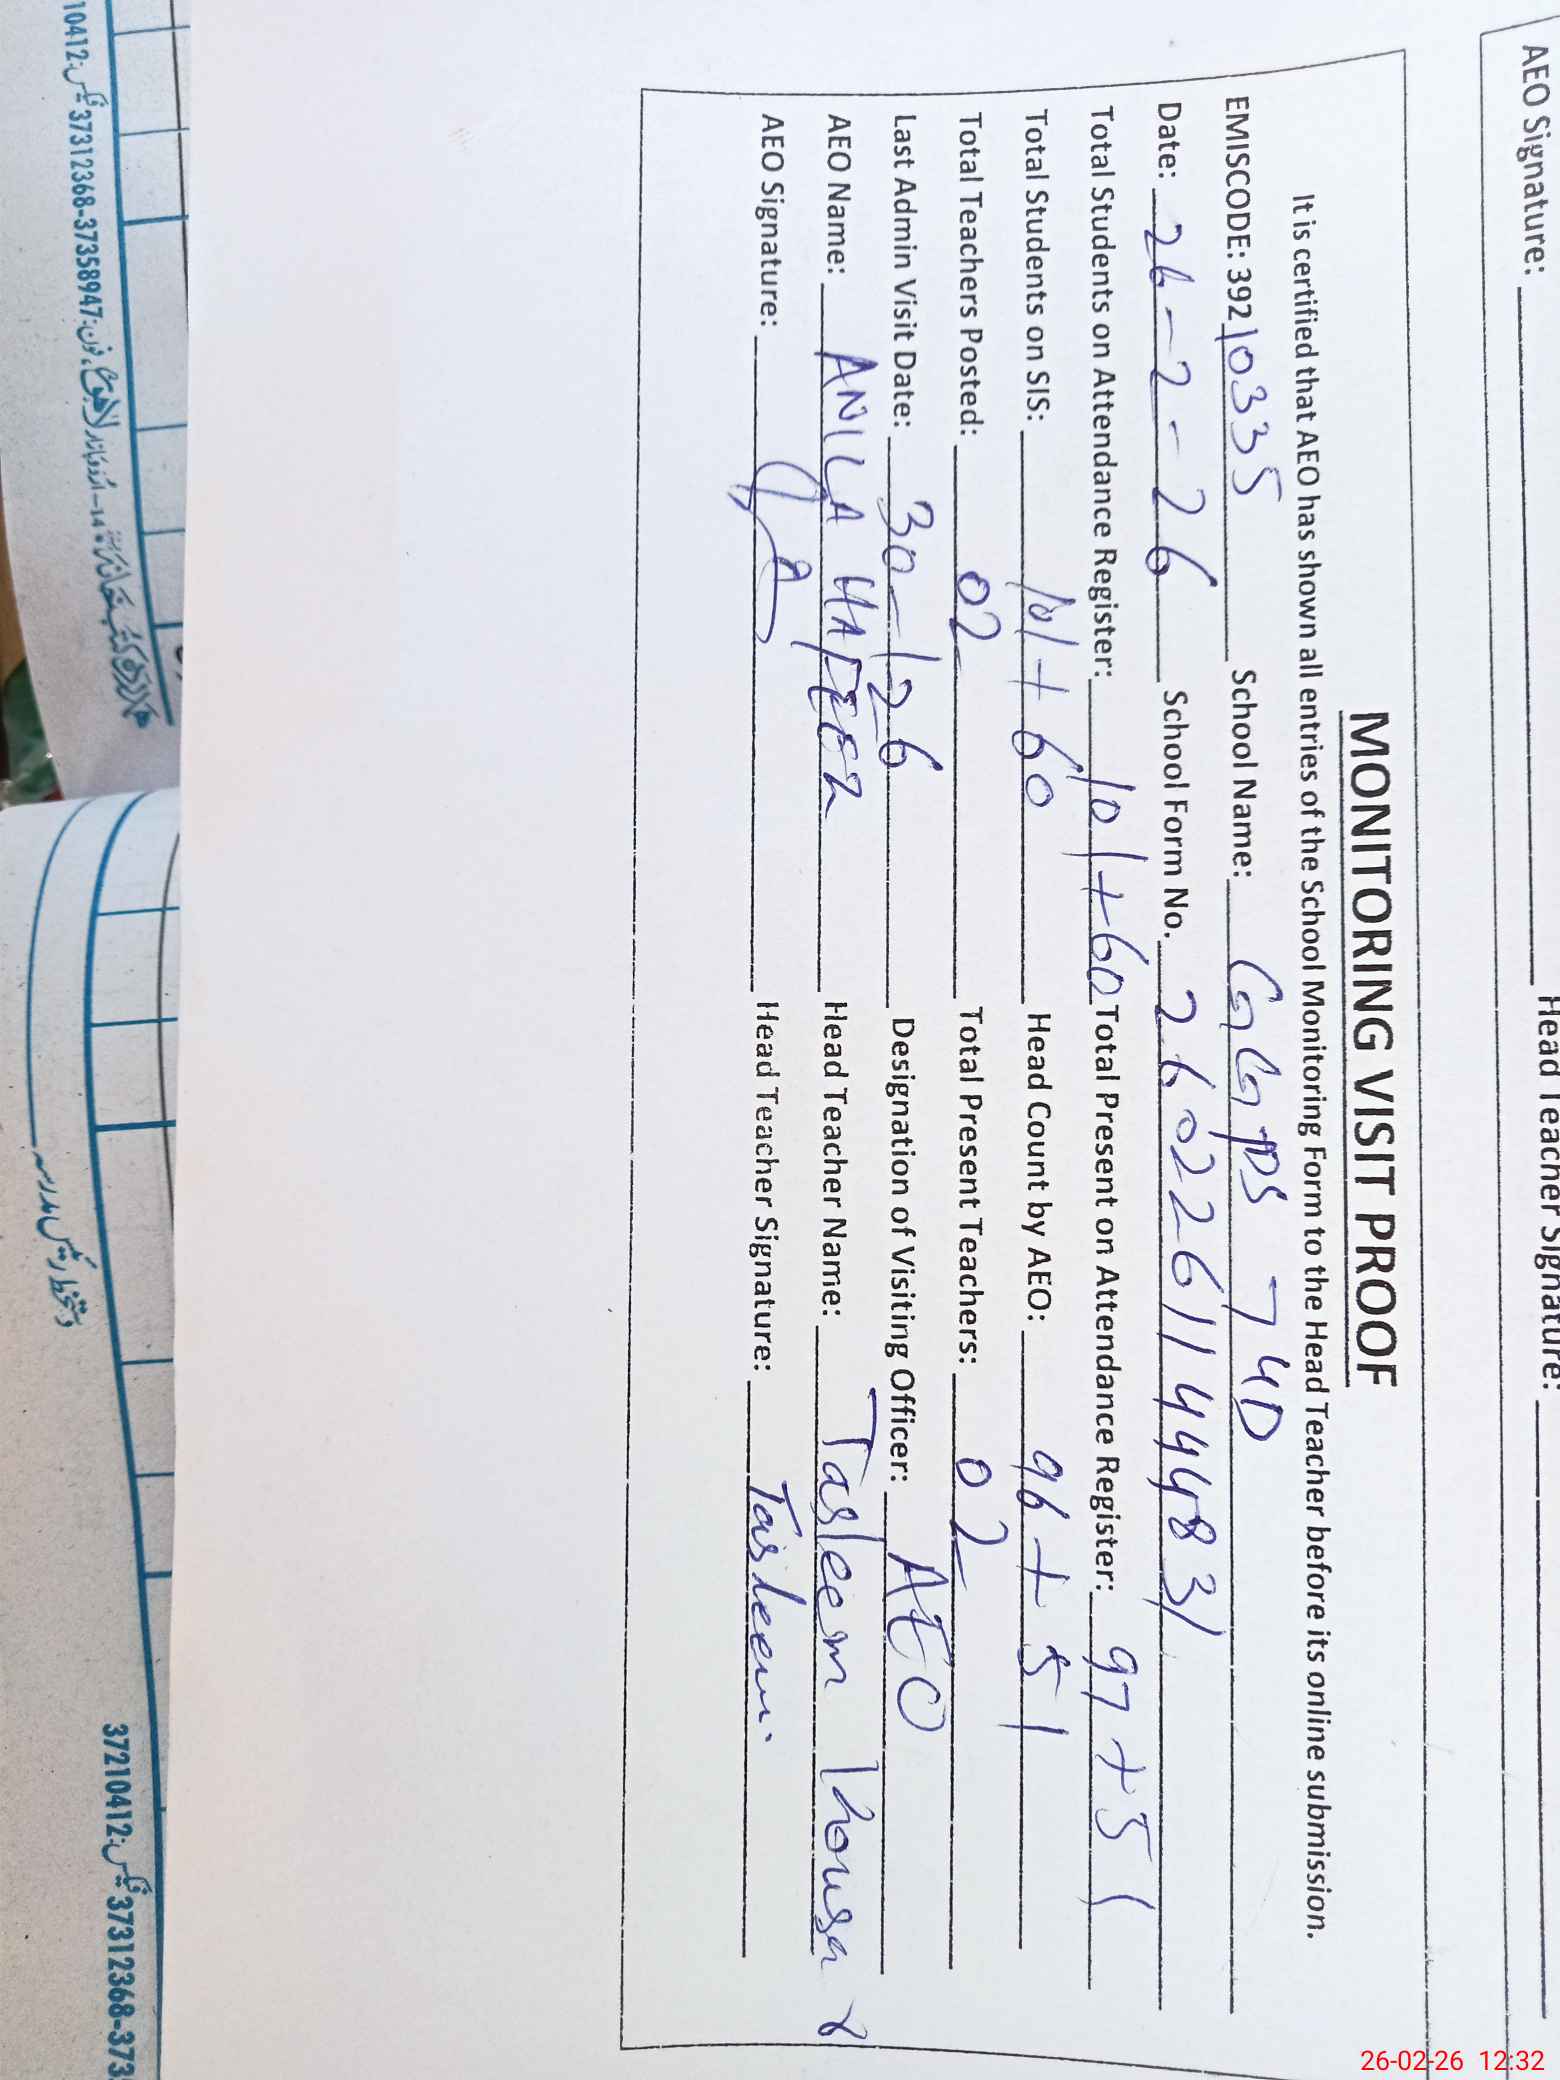 AEO Signature: Head Teacher Signature:
MONITORING VISIT PROOF
It is certified that AEO has shown all entries of the School Monitoring Form to the Head Teacher before its online submission.
EMISCODE: 39210335 School Name: GGPS 74D
Date: 26-2-26 School Form No. 26022611444831
Total Students on Attendance Register: 101+60 Total Present on Attendance Register: 97+51
Total Students on SIS: 101+60 Head Count by AEO: 96+51
Total Teachers Posted: 02 Total Present Teachers: 02
Last Admin Visit Date: 30-1-26 Designation of Visiting Officer: AEO
AEO Name: ANILA HAFEEZ Head Teacher Name: Tasleem
AEO Signature: Head Teacher Signature: Tasleem.
10412 فیکس: 37312368-37358947 فون: لاہور
دستخط رئیس مدرسہ
37210412 فیکس: 37312368-373
26-02-26 12:32